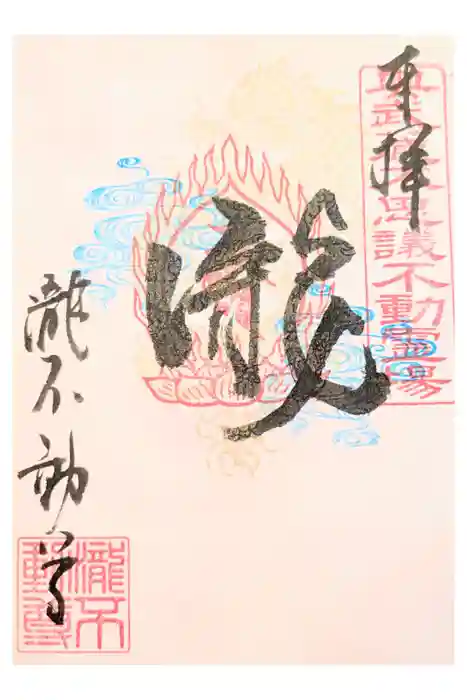 奉拝
不思議不動霊場
瀧
瀧不動尊
瀧不動尊